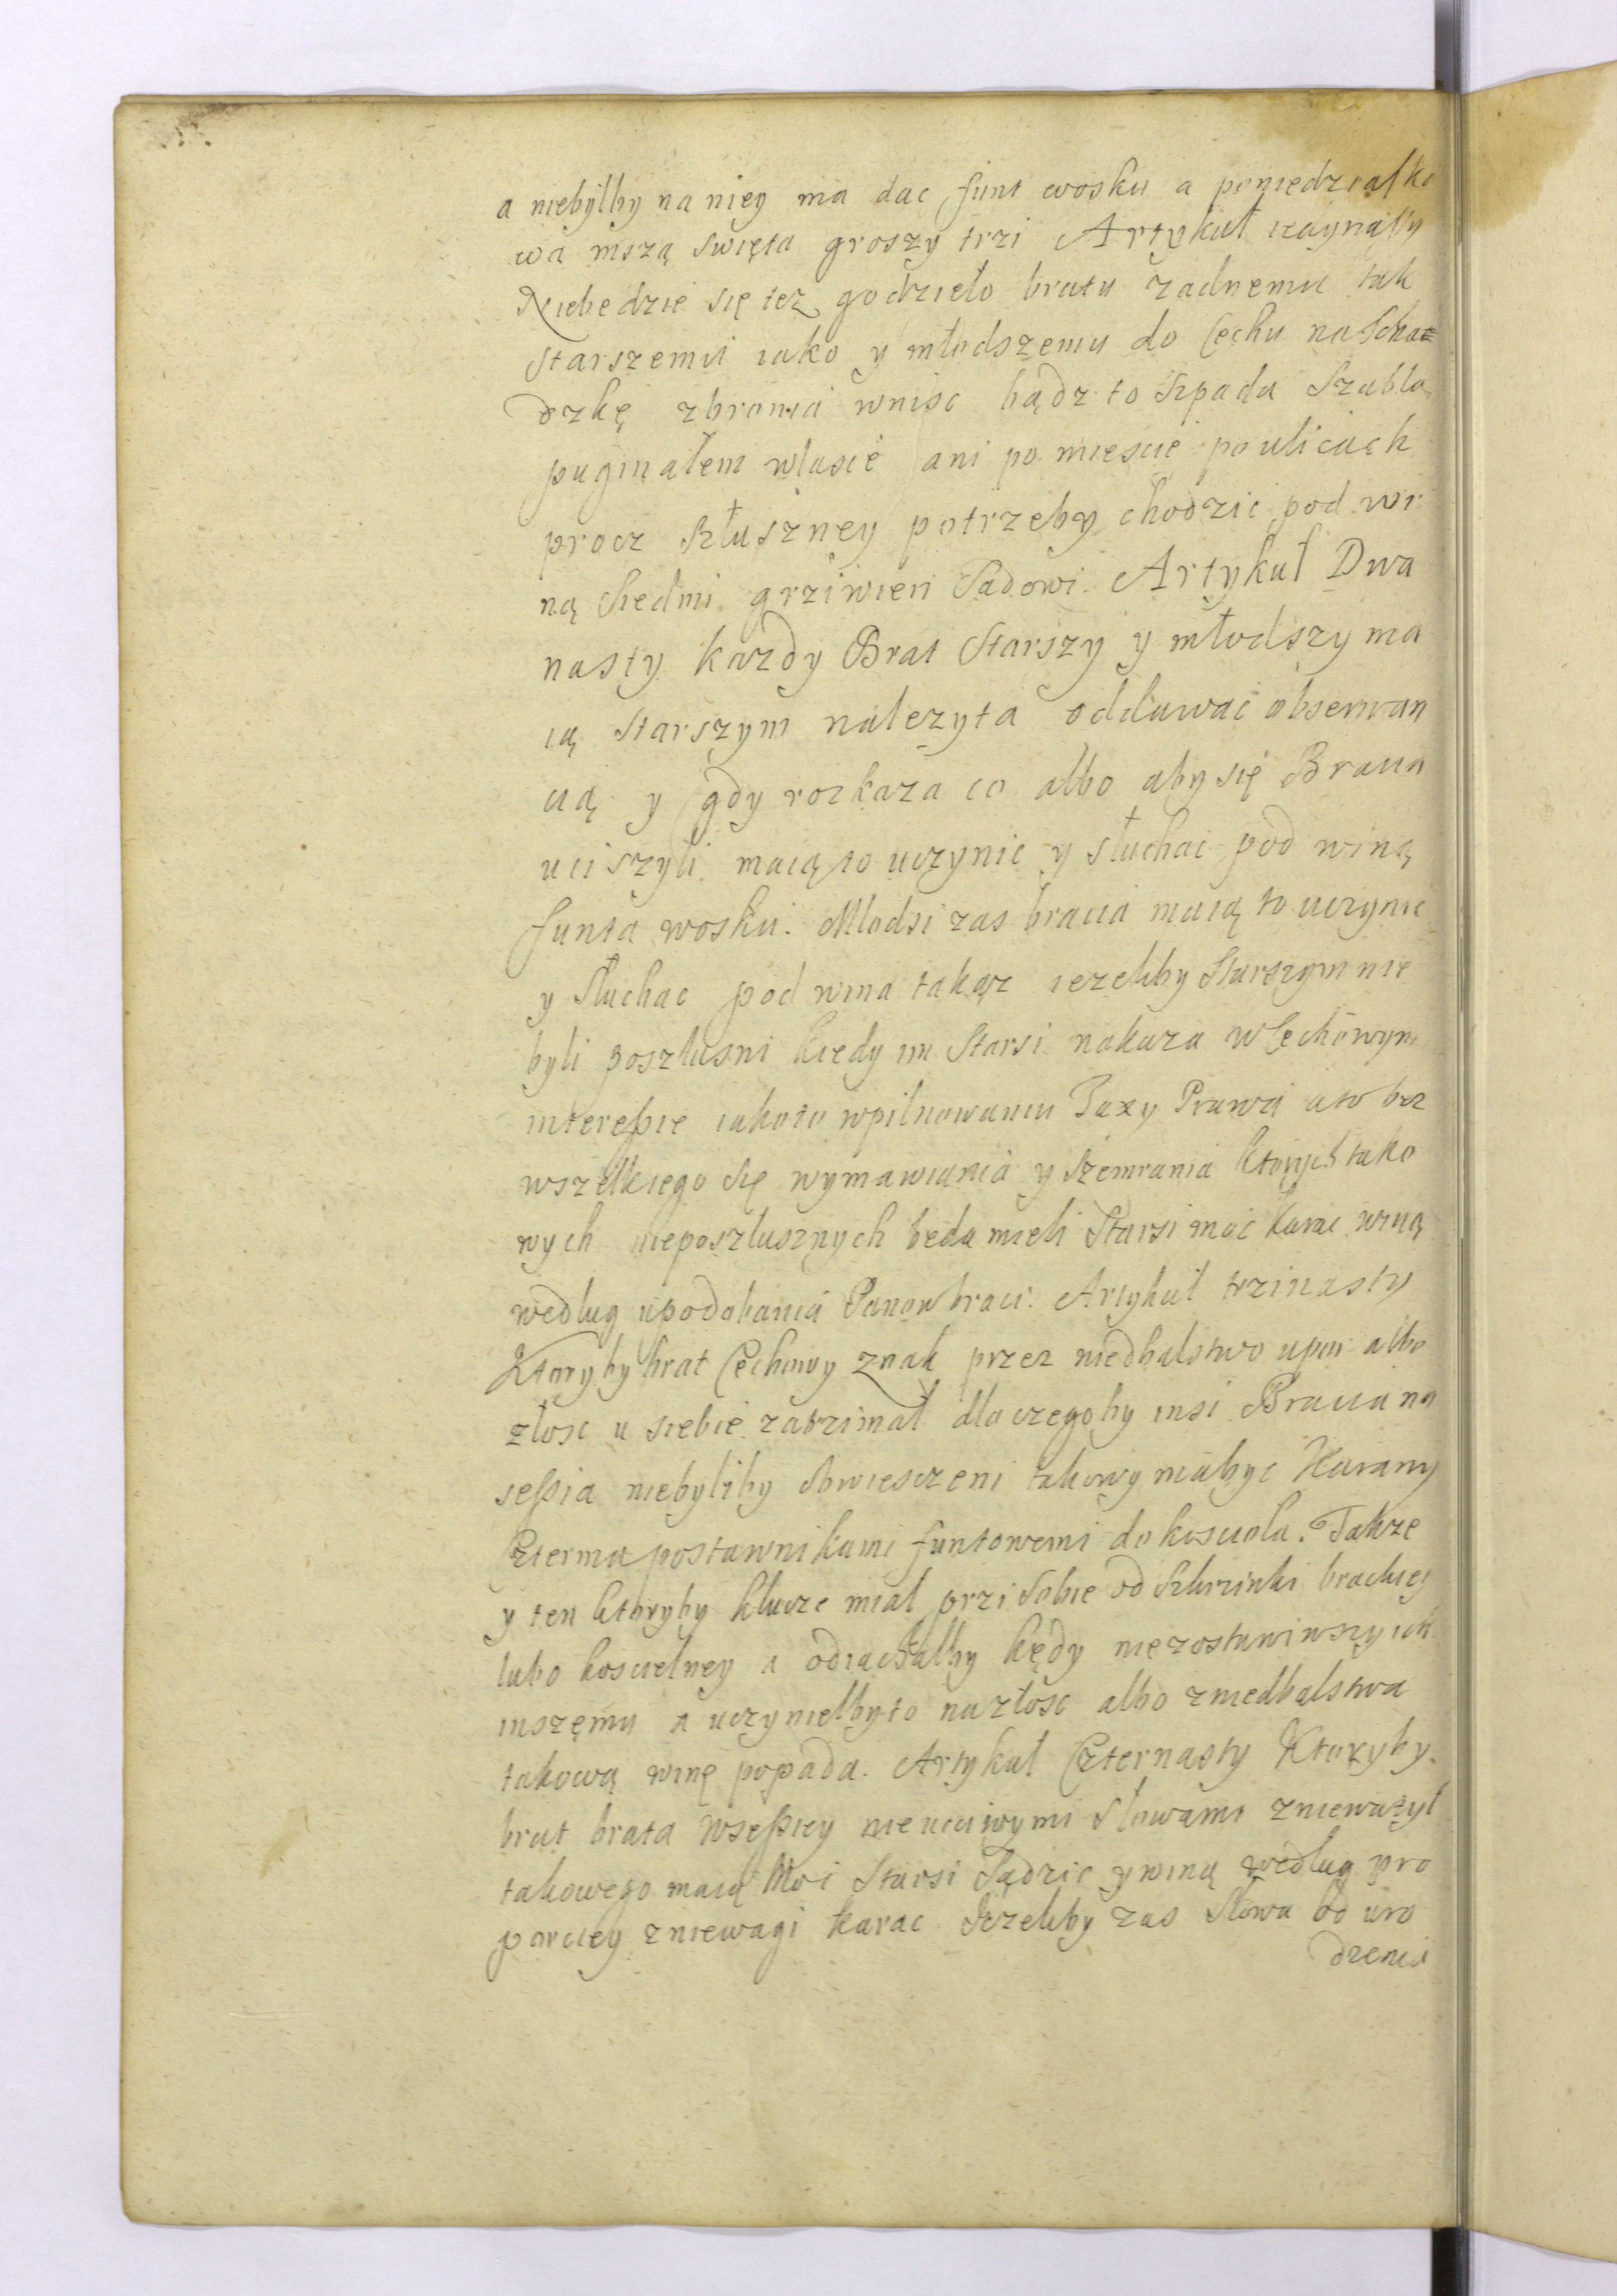 a niebyłby na niey ma dac funt wosku a poniedziałko
wa mszą swięta groszy trzi Artykuł
Niebędzie się tez godzieło bratu zadnemu tak
starszemu iako y młodszemu do Cechu na Scha=
dzkę zbronia wnisc bądz to szpada szabla
puginałem wlasie ani po miescie po ulicach
procz słuszney potrzeby chodzic pod wi
ną siedmi grziwien Sadowi. Artykuł Dwa
nasty kazdy Brat Starszy y młodszy ma
ią starszym nalezyta oddawac obserwan
cią y gdy rozkaza co albo aby się Bracia
uciszyli maią to uczynic y słuchac pod winą
funta wosku. Młodsi zas bracia maią to uczynic
y słuchac pod wina takąz iezeliby Starszym nie
byli poszłusni kiedy im Starsi nakaza w Cechowym
interessie iakoto wpilnowaniu Taxy Prawa ato bez
wszelkiego się wymawiania y szemrania ktorych tako
wych nieposzlusznych beda mieli Starsi moc karac winą
według upodobania Panow braci. Artykuł trzinasty
Ktoryby brat Cechowy znak przez niedbalstwo upor albo
złosc u siebie zatrzimał dla czegoby insi Bracia na
sessia niebyliby obwiesczeni takowy mabyc Karany
Czterma postawnikami funtowemi do kosciola. Takze
y ten ktoryby klucze miał przi sobie od szkrzinki brackiey
lubo koscielney a odiachałby kędy niezostawiwszy ich
inszęmu a uczyniełbyto nazłosc albo zniedbalstwa
takową winę popada. Artykuł Czternasty Ktoryby
brat brata wsessiey nieucciwymi słowami zniewazył
takowego maią Moi Starsi Sądzic y winą według pro
porciey zniewagi karac Iezeliby zas słowa od uro
dzenia